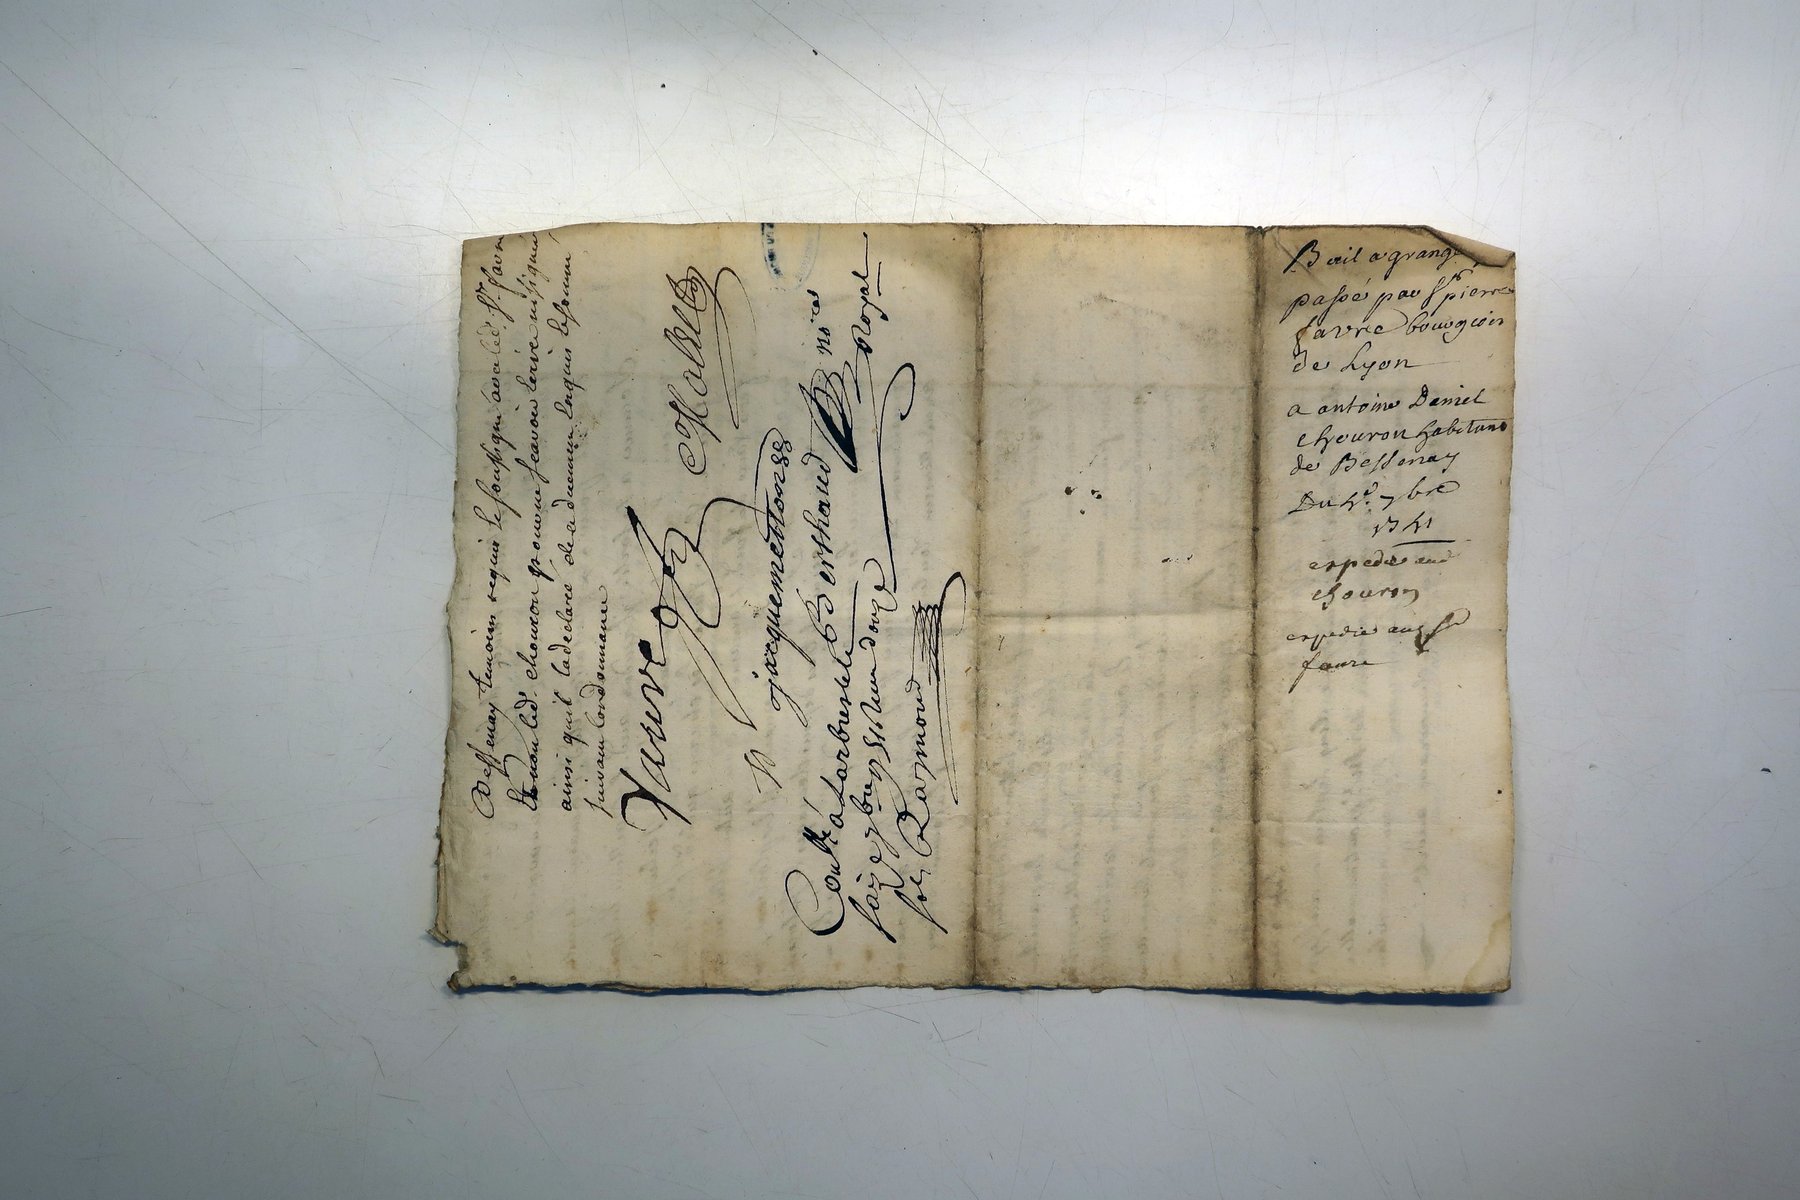 Bessenay temoins requis le soussigné avec led. Sr. favre
Et non led. chouron pour ne scavoir ecrire ni signer
ainsi quil la declaré de ce deuement Enquis le sommé
suivant lordonnance
Favre
jacquemetton
Berthaud
nre
Royal
Conllé à Larbresle le
saize 7bre
Reçu douze
sols Raymond
Bail a grange
passé par Sr pierre
favre bourgeois
de Lyon
a antoine Daniel
chouron habitant
de Bessenay
Du 4e. 7bre
1741
expedié aud
chouron
expedié aud Sr
favre